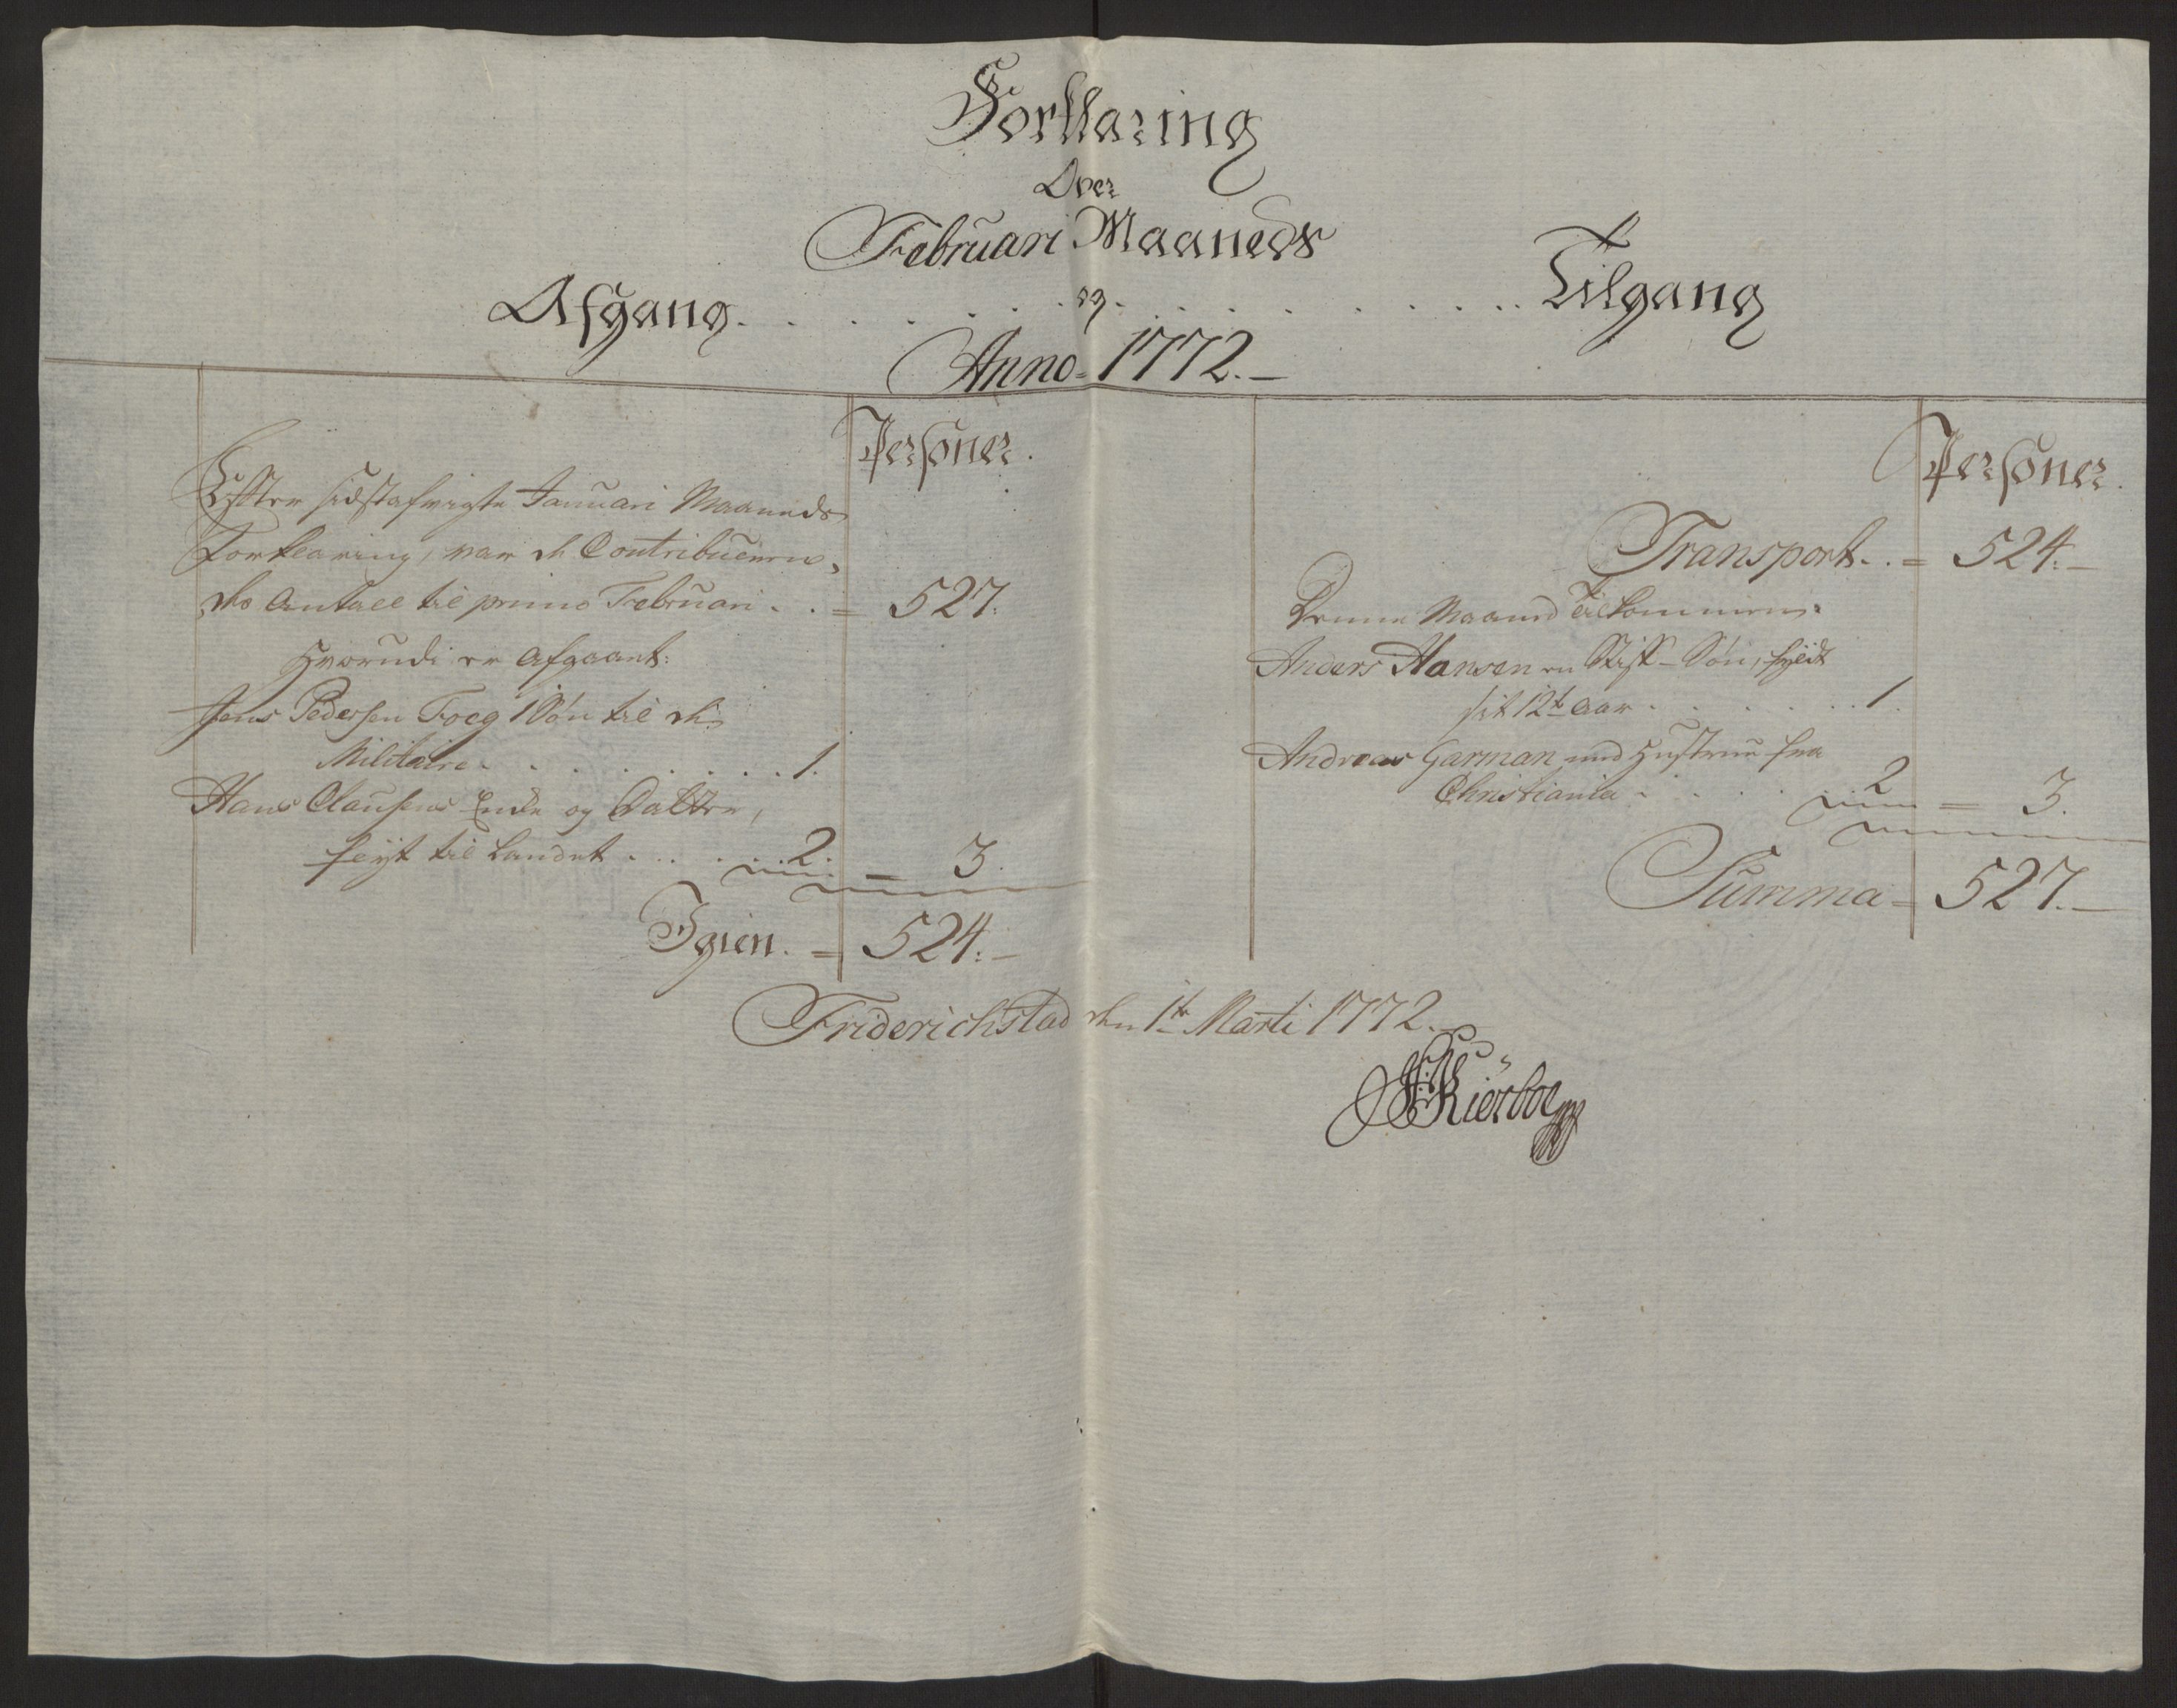 Forklaring
Over
Februari Maaneds
Afgang . . . . . . og . . . . . . . . Tilgang
Anno 1772.
Personer.
Efter sidstafvigte Januari Maaneds
Forklaring, var de Contribueren-
des Antall til primo Februari . . = 527.
Hvorudi er Afgaaet:
Jens Pedersen Foeg 1 Søn til det
Militaire . . . . . . . . . 1.
Hans Clausens Enke og Datter,
flyt til Landet . . . . . 2. = 3.
Igien. = 524.
Personer.
Transport . . = 524.
Denne Maaned tilkommen:
Anders Hansen en Stif-Søn, fyldt
sit 12te Aar . . . . . . 1.
Andreas Garman med Hustrue fra
Christiania . . . . 2 = 3.
Summa = 527.
Friderichstad den 1te Marti 1772.
Kierboe